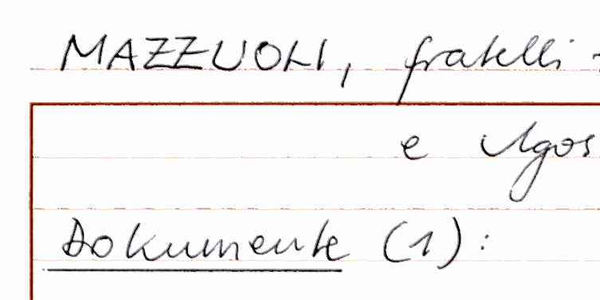 MAZZUOLI, fratelli -
e Agos
Dokumente (1):